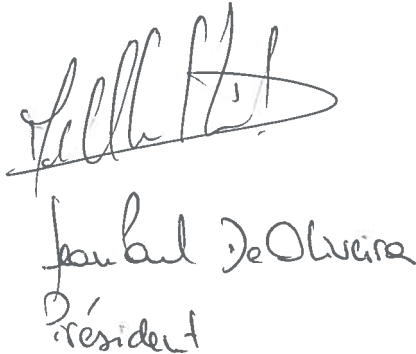 Jean Paul De Oliveira
Président